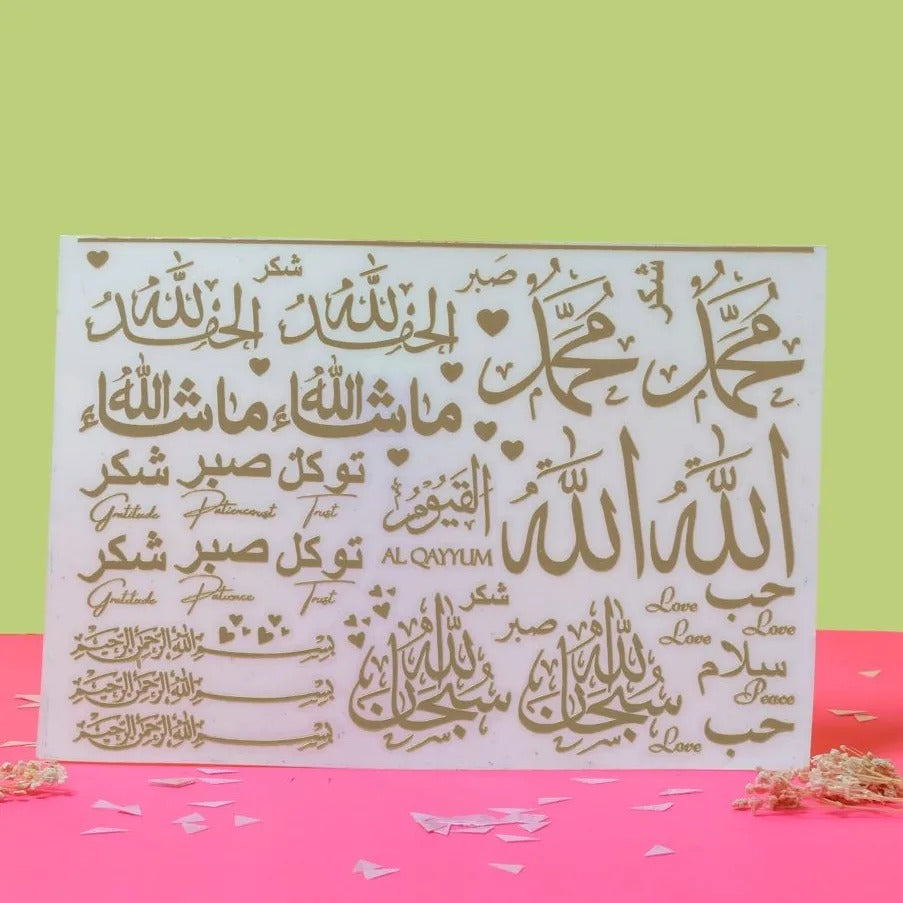 الحمد لله شكر الحمد لله صَبر محمد شكر محمد
ما شاء الله ما شاء الله
شكر صبر توكل
Gratitude Patiencoust Trust
القيوم
AL QAYYUM
الله الله
شكر صبر توكل
Gratitude Patience Trust
بسم الله الرحمن الرحيم
بسم الله الرحمن الرحيم
بسم الله الرحمن الرحيم
سُبحان الله شكر
صبر سُبحان الله
Love حب
Love Love
سلام
Peace
Love حب